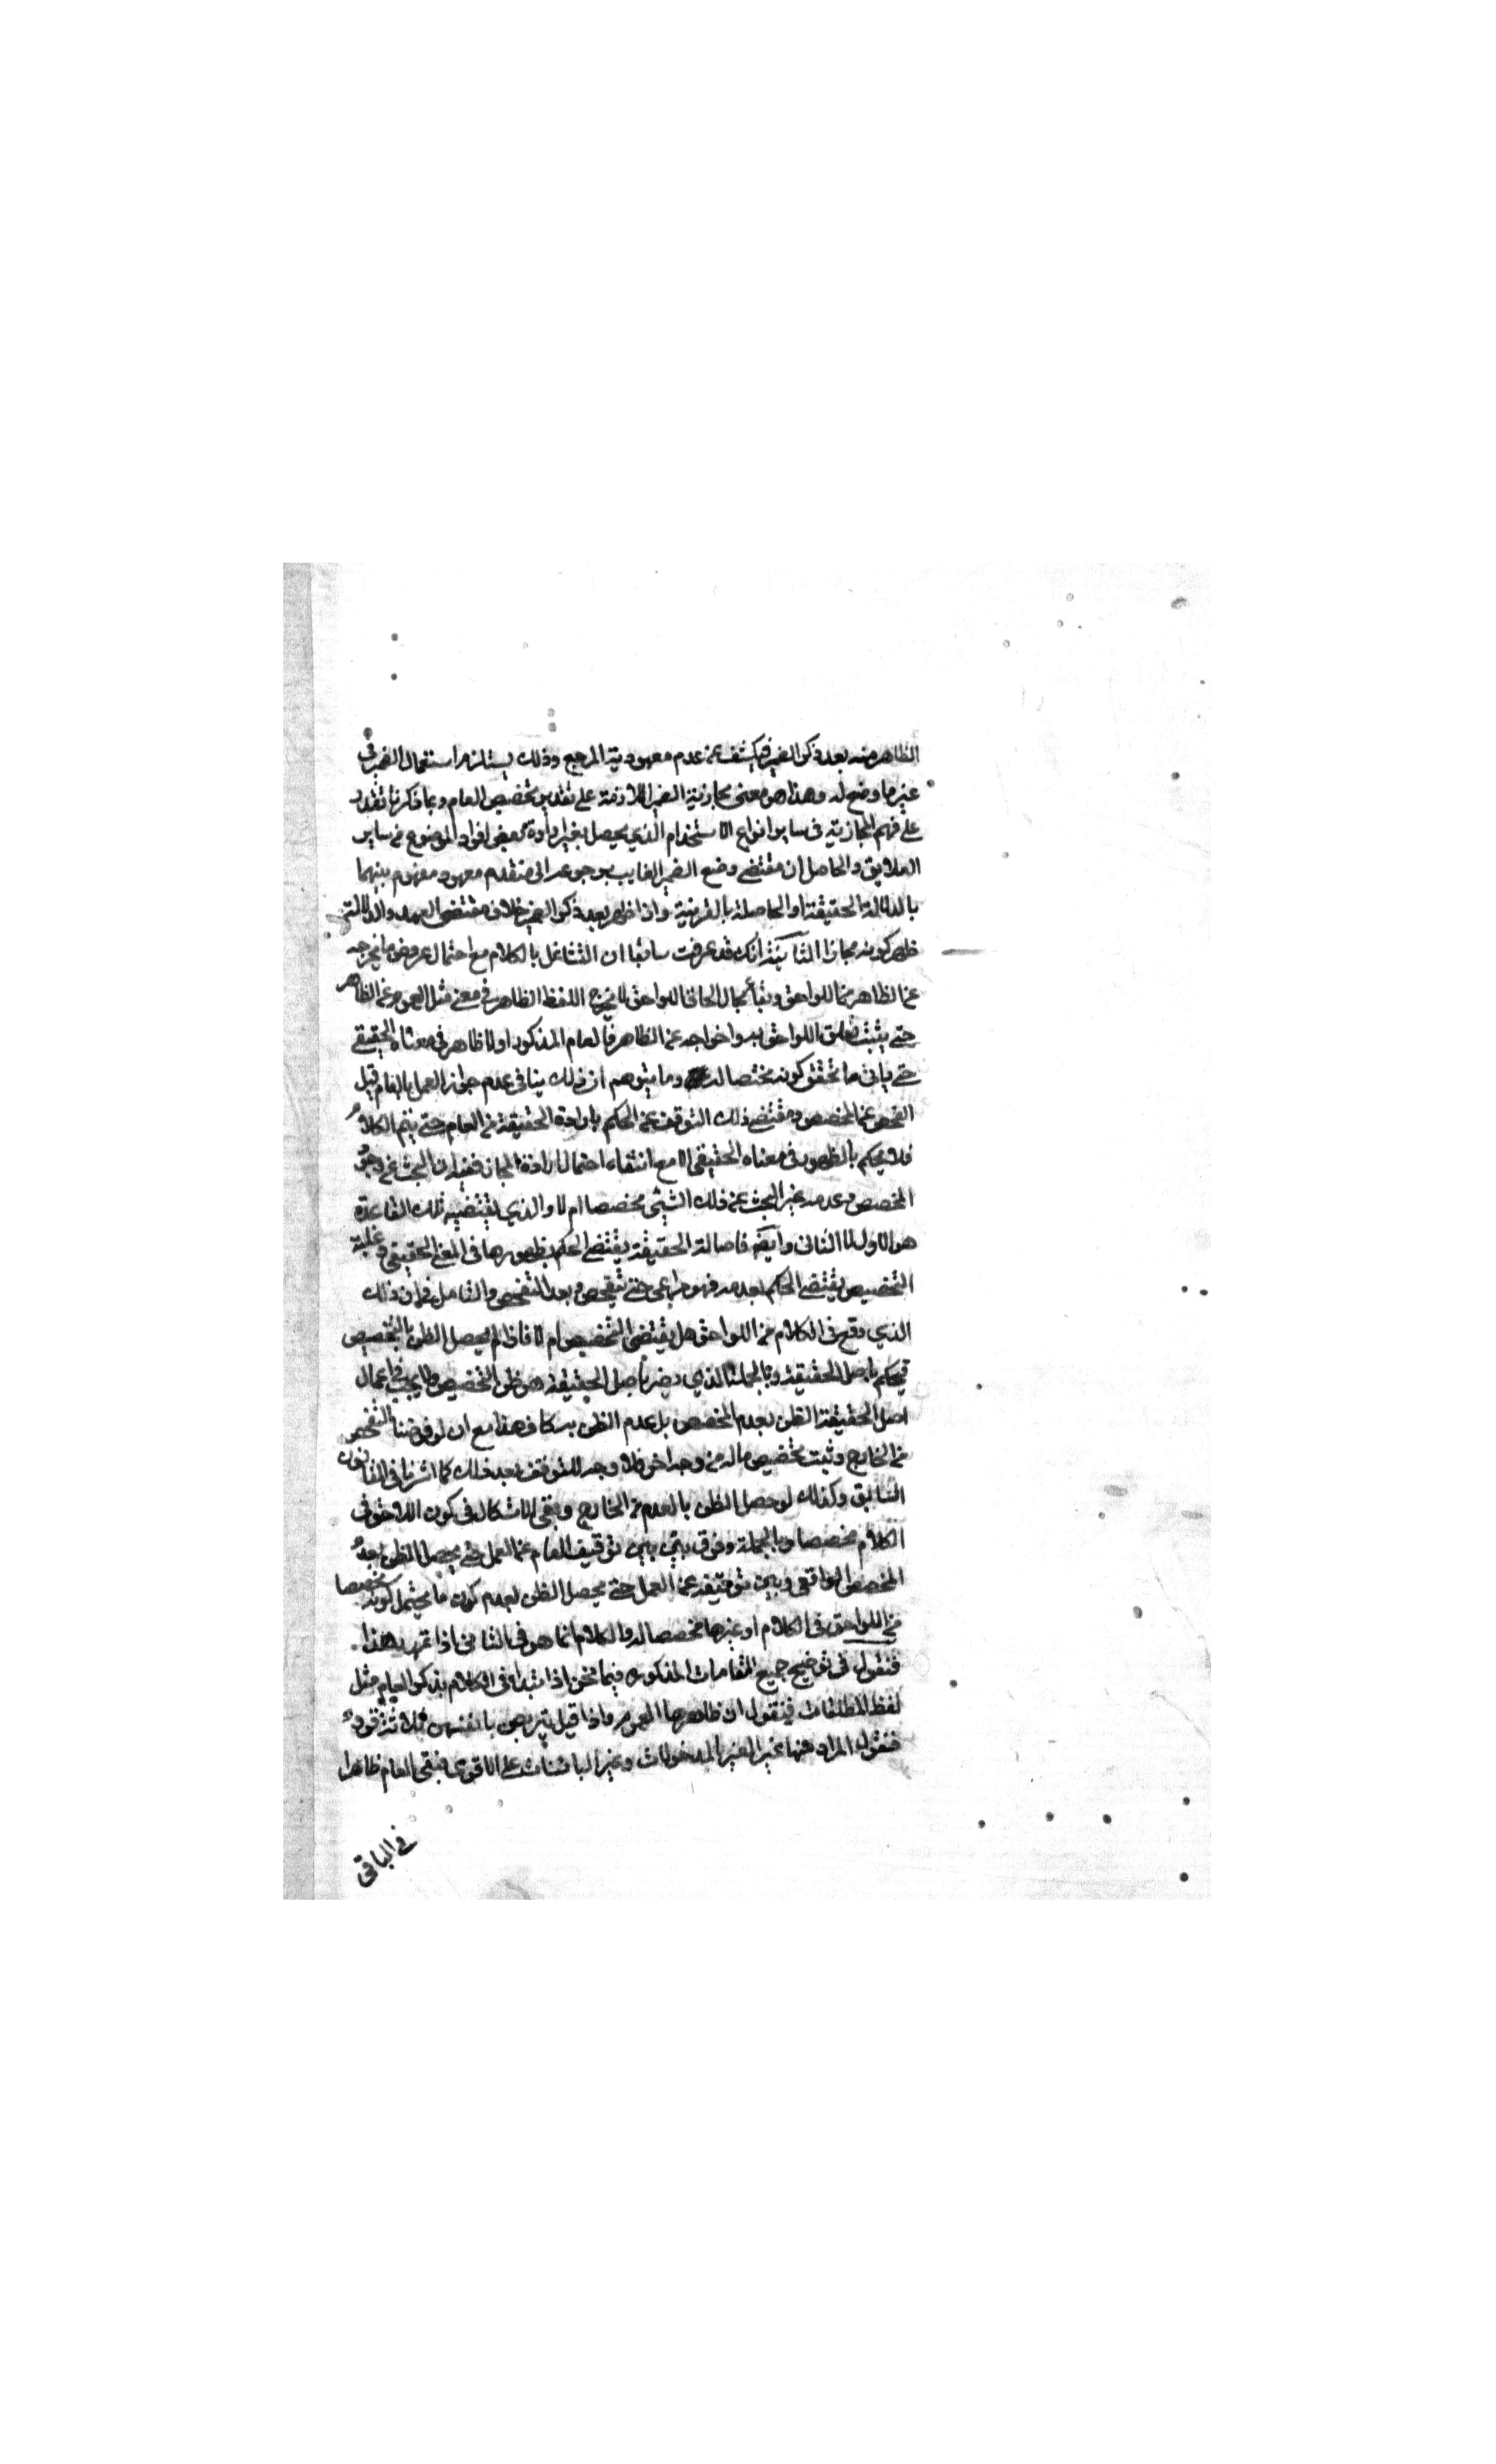 الظاهر منه بعد ذكر الضمير فيكشف عن عدم معهودية المرجع وذلك يستلزم استعمال الضمير في
غير ما وضع له وهذا هو معنى مجازية الضمير اللازمة على تقدير تخصيص العام وبما ذكرنا تقدر
على فهم المجازية في ساير انواع الاستخدام الذي يحصل بغير ارادة بعض افراد الموضوع من ساير
العلايق والحاصل ان مقتضى وضع الضمير الغايب رجوعه الى متقدم معهود مفهوم بينهما
بالدلالة الحقيقة او الحاصلة بالقرينة واذا ظهر بعد ذكر الضمير خلاف مقتضى العهد والدلالة
ظهر كونه مجازا الثانية انك قد عرفت سابقا ان التشاغل بالكلام مع احتمال عروض ما يخرجه
عن الظاهر من اللواحق وبقاء مجال الحاق اللواحق لا يخرج اللفظ الظاهر في معنى مثل العموم عن الظاهر
حتى يثبت تعلق اللواحق به واخراجه عن الظاهر فالعام المذكور اولا ظاهر في معناه الحقيقي
حتى ياتي ما تحقق كونه مختصا له وما يتوهم ان ذلك ينافي عدم جواز العمل بالعام قبل
الفحص عن المخصص ومقتضى ذلك التوقف عن الحكم بارادة الحقيقة من العام حتى يتم الكلام
فلا يحكم بالظهور في معناه الحقيقي الا مع انتفاء احتمال ارادة المجاز ففيه ان البحث عن وجود
المخصص وعدمه غير البحث عن ذلك الشيء مخصصا ام لا والذي يقتضيه تلك القاعدة
هو الاول لا الثاني وايضا فاصالة الحقيقة يقتضى الحكم بظهورها في المعنى الحقيقي وغلبة
التخصيص يقتضى الحكم بعدمه فهو مراعى حتى يتفحص وبعد التفحص والتامل في ان ذلك
الذي وقع في الكلام من اللواحق هل يقتضى التخصيص ام لا فاذا لم يحصل الظن بالتخصيص
فيحكم باصل الحقيقة وبالجملة الذي يضر باصل الحقيقة هو ظن التخصيص ولا يجب في اعمال
اصل الحقيقة الظن بعدم المخصص بل عدم الظن به كاف هذا مع ان لو فرضنا التفحص
من الخارج وثبت تخصيص ما له من وجه اخر فلا وجه للتوقف بعد ذلك كما اشرنا في القانون
السابق وكذلك لو حصل الظن بالعدم من الخارج وبقي الاشكال في كون اللاحق في
الكلام مخصصا وبالجملة وفرق بيّن بين توقيف العام عن العمل حتى يحصل الظن بعدم
المخصص الواقعي وبين توقيفه عن العمل حتى يحصل الظن بعدم كون ما يحتمل كونه مخصصا
من اللواحق في الكلام او غيرها مخصصا له والكلام انما هو في الثاني اذا تمهد هذا
فنقول في توضيح جميع المقامات المذكورة فيما نحن اذا ابتداء في الكلام بذكر العام مثل
لفظ المطلقات فنقول ان ظاهرها العموم واذا قيل يتربصن بانفسهن ثلاثة قروء
فنقول المراد منها غير الغير المدخولات وغير اليائسات على الاقوى فبقي العام ظاهرا
في الباقي